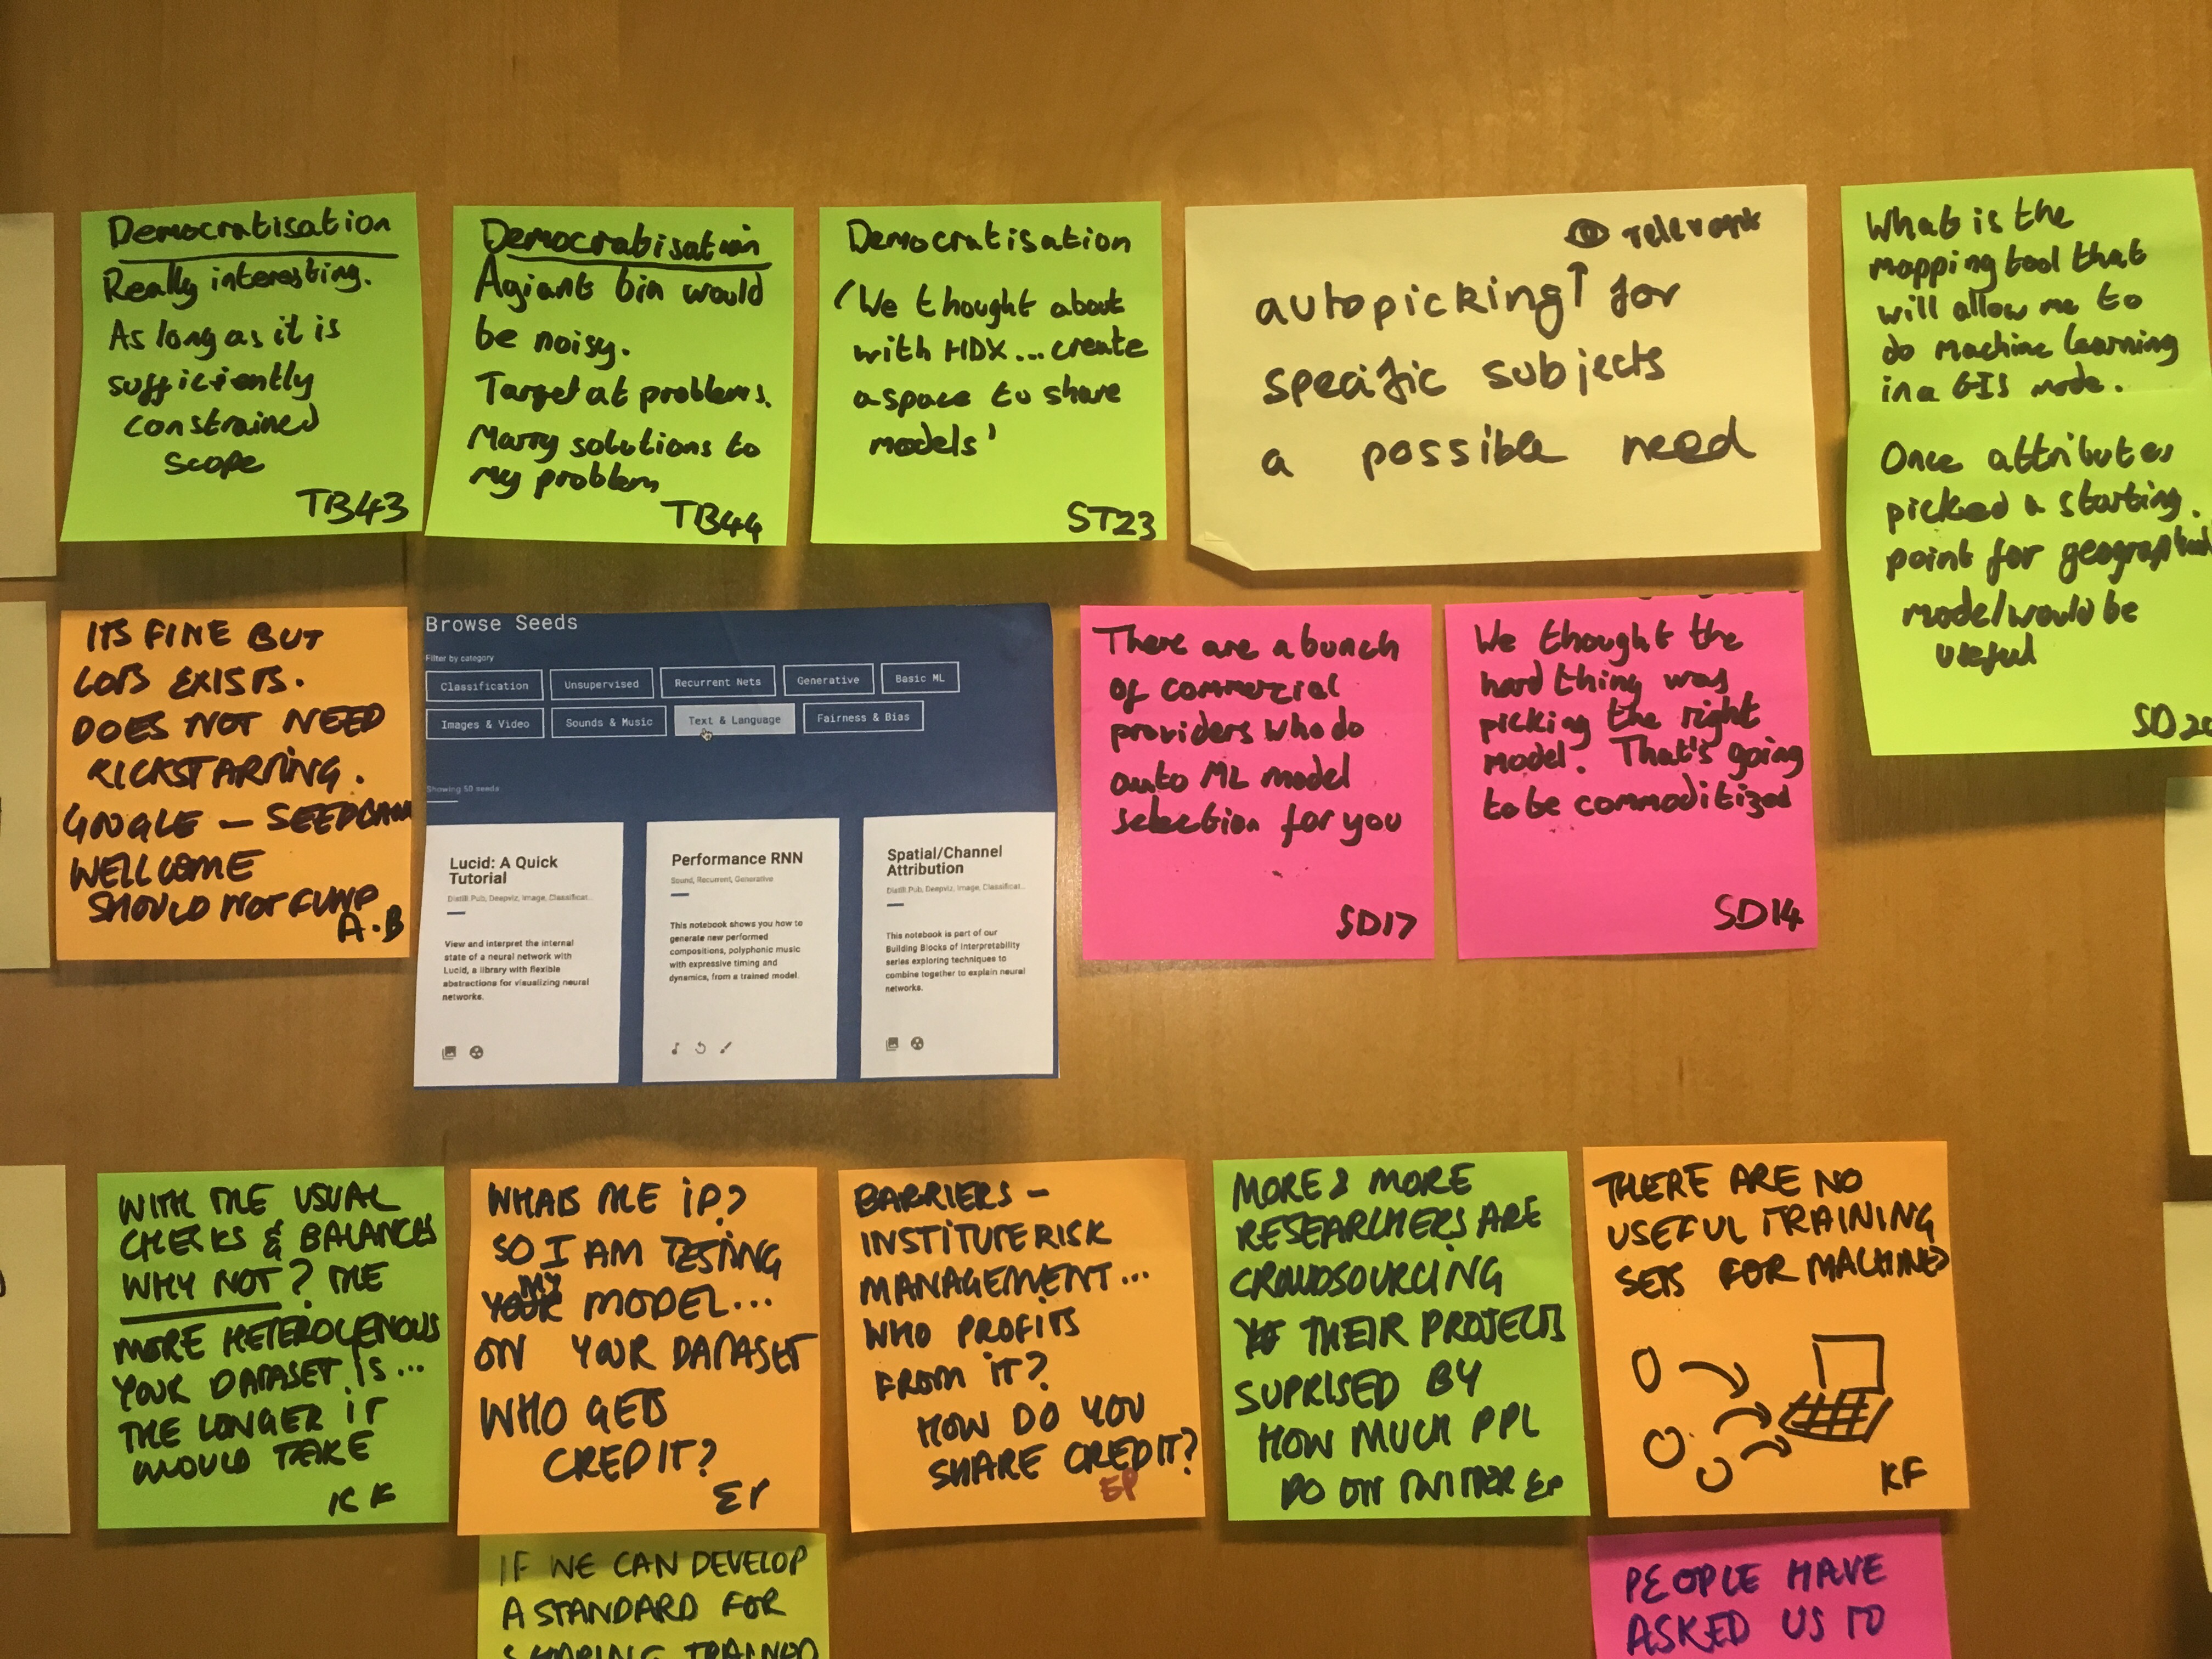 Democratisation
Really interesting.
As long as it is
sufficiently
constrained
scope
TB43
Democratisation
A giant bin would
be noisy.
Target at problems.
Marry solutions to
my problem
TB44
Democratisation
'We thought about
with HDX... create
a space to share
models'
ST23
relevant
autopicking↑ for
specific subjects
a possible need
What is the
mapping tool that
will allow me to
do machine learning
in a GIS mode.
Once attributes
picked a starting
point for geographical
model would be
useful
ITS FINE BUT
LOTS EXISTS.
DOES NOT NEED
KICKSTARTING.
GOOGLE – SEEDBANK
WELLCOME
SHOULD NOT FUND
A.B
Browse Seeds
Filter by category
Classification Unsupervised Recurrent Nets Generative Basic ML
Images & Video Sounds & Music Text & Language Fairness & Bias
Showing 50 seeds
Lucid: A Quick
Tutorial
Distill.Pub, Deepviz, Image, Classificat...
View and interpret the internal
state of a neural network with
Lucid, a library with flexible
abstractions for visualizing neural
networks.
Performance RNN
Sound, Recurrent, Generative
This notebook shows you how to
generate new performed
compositions, polyphonic music
with expressive timing and
dynamics, from a trained model.
Spatial/Channel
Attribution
Distill.Pub, Deepviz, Image, Classificat...
This notebook is part of our
Building Blocks of Interpretability
series exploring techniques to
combine together to explain neural
networks.
There are a bunch
of commercial
providers who do
auto ML model
selection for you
SD17
We thought the
hard thing was
picking the right
model. That's going
to be commoditized
SD14
WITH THE USUAL
CHECKS & BALANCES
WHY NOT? THE
MORE HETEROGENOUS
YOUR DATASET IS...
THE LONGER IT
WOULD TAKE
KF
WHATS THE IP?
SO I AM TESTING
MY
MODEL...
ON YOUR DATASET
WHO GETS
CREDIT?
EP
BARRIERS –
INSTITUTE RISK
MANAGEMENT...
WHO PROFITS
FROM IT?
HOW DO YOU
SHARE CREDIT?
EP
MORE & MORE
RESEARCHERS ARE
CROWDSOURCING
THEIR PROJECTS
SUPRISED BY
HOW MUCH PPL
DO ON TWITTER EP
THERE ARE NO
USEFUL TRAINING
SETS FOR MACHINES
KF
IF WE CAN DEVELOP
A STANDARD FOR
SHARING TRAINED
PEOPLE HAVE
ASKED US TO